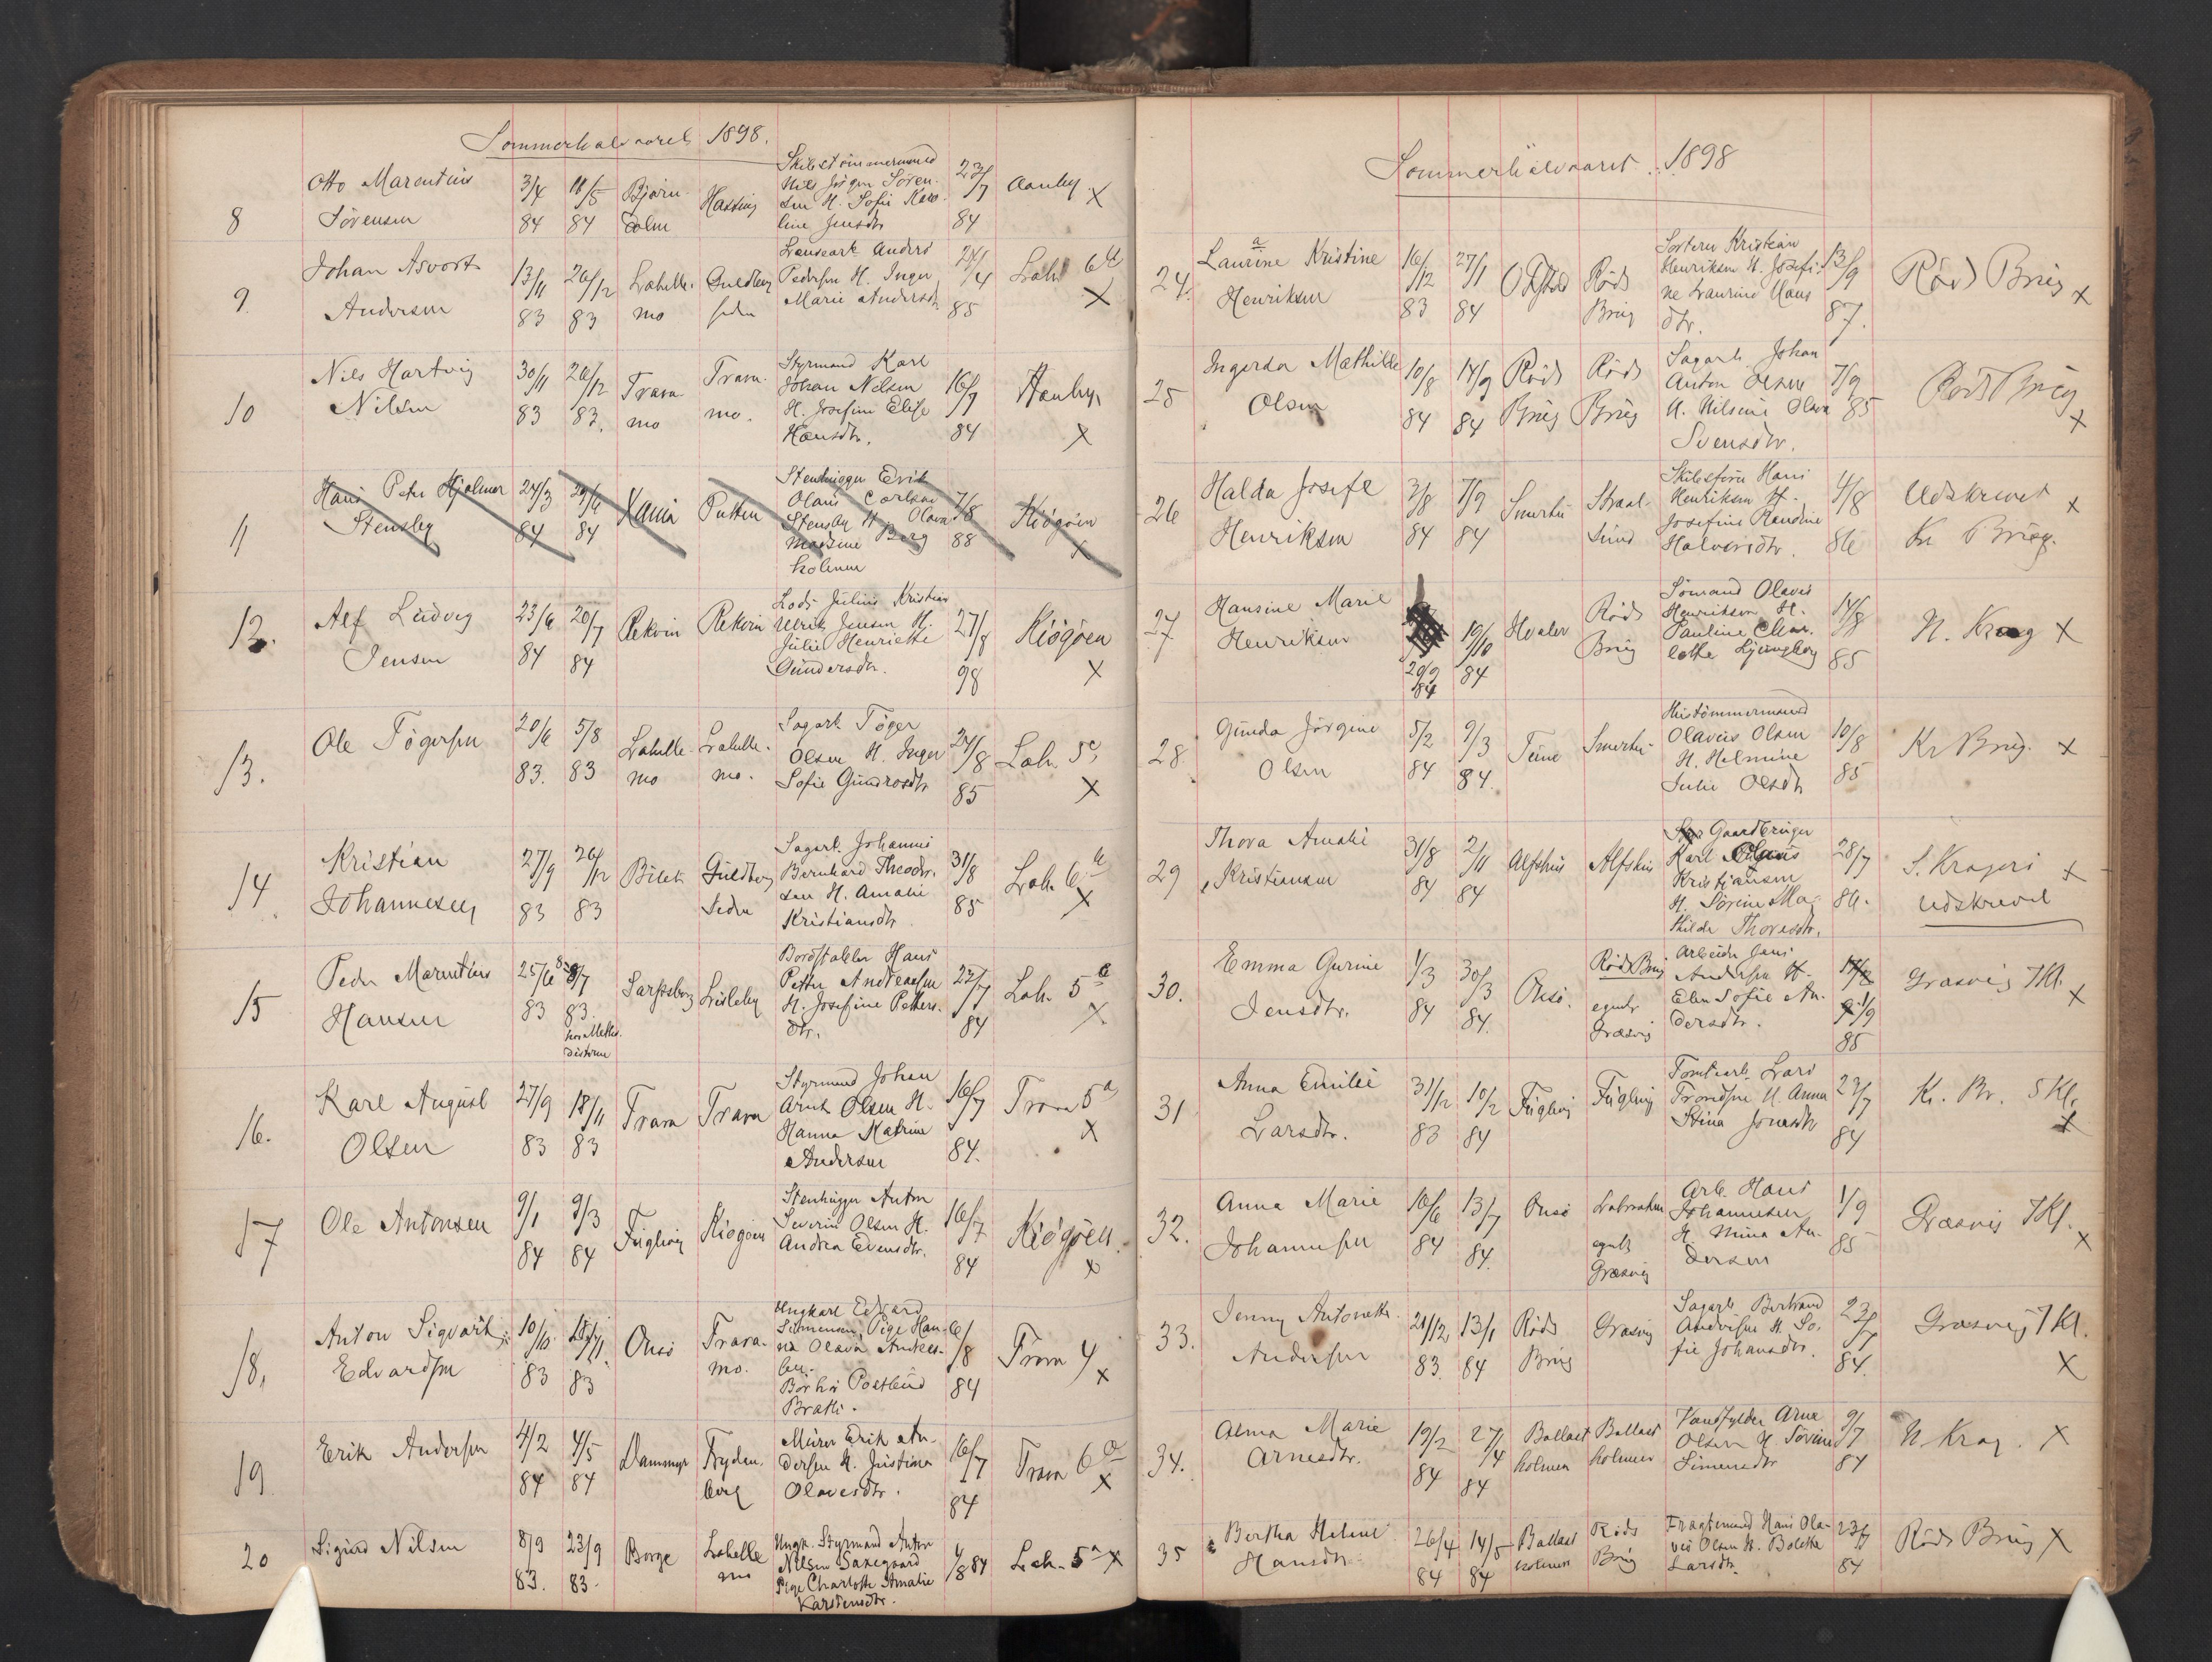 Sommerhalvaaret 1898.
8
Otto Marentius
Sørensen
3/4
84
18/5
84
Bjørn
holm
Hassing
Skibstømmermand
Nils Jørgen Søren-
sen H. Sofie Karo-
line Jensdtr
23/7
84
Aanby
X
9.
Johan Asvort
Andersen
13/11
83
26/12
83
Labelle-
mo
Guldberg
sedn
Landsearb Anders
Pedersen H. Inger
Marie Andersdtr
24/4
85
Lah 6
X
10
Nils Hartvig
Nilsen
30/11
83
26/12
83.
Trara
mo
Trara-
mo.
Styrmand Karl
Johan Nilsen
H. Josefine Elise
Hansdtr.
16/7
84
Haaby
X
11
Hans Peter Hjalmer
Stensby
24/3
84
29/6
84
Xania
Putten
Stenhugger Erik
Olaus Carlsen
Stensby H Olava
Madsine Berg
holmen
7/8
88
Kiøgøen
X
12.
Alf Ludvig
Jensen
23/6
84
20/7
84
Rekvin
Rekvin
Lods Julius Kristian
Ulrik Jensen H.
Julie Henriette
Gundersdtr.
27/8
98
Kiøgøen
X
13.
Ole Tøgersen
20/6
83.
5/8
83
Labelle-
mo
Labelle-
mo.
Sagarb Tøger
Olsen H. Inger
Sofie Gundrosdtr
24/8
85
Lah. 5c
X
14
Kristian
Johannesen
27/9
83
26/12
83
Bilet
Guldberg
sedn
Sagarb. Johannes
Bernhard Theodor-
sen H. Amalie
Kristiansdtr
31/8
85
Lah 6
X
15
Peder Marentius
Hansen
25/6
83
8/7
83.
hos Metho-
disterne
Sarpsborg
Lisleby
Bordstabler Hans
Petter Andreassen
H. Josefine Petters-
dtr.
23/7
84
Lah. 5
X
16.
Karl August
Olsen
27/9
83
18/11
83
Trara
Trara
Styrmand Johan
Arnt Olsen H.
Hanna Katrine
Andersen
16/7
84.
Trara 5a
X
17
Ole Antonsen
9/1
84
9/3
84
Fuglevig
Kiøgøen
Stenhugger Anton
Severin Olsen H.
Andrea Evensdtr.
16/7
84
Kiøgøen.
X
18.
Anton Sigvart
Edvardsen
10/10
83
18/11
83
Onsø
Trara-
mo.
Ungkarl Edvard
Simensen, Pige Han-
na Olava Andrea-
sen.
Bor hos Postbud
Bratli.
6/8
84
Trara 4
X
19
Erik Andersen
4/2
84
4/5
84
Dammyr
Fryden-
berg
Murer Erik An-
dersen H. Justina
Olavesdtr.
16/7
84
Trara 6a
X
20
Sigurd Nilsen
8/9
83.
23/9
83.
Borge
Labelle
mo
Ungk. Styrmand Anton
Nilsen Saxegaard
Pige Charlotte Amalie
Karstensdtr.
1/8 84
Lah. 5a X
Sommerhalvaaret 1898
24.
Laurine Kristine
a
Henriksen
16/12
83
27/1
84
O Fjsted
Røds
Brug
Sorterer Kristian
Henriksen H. Josefi-
ne Laurine Hans
dtr.
13/9
87.
Røds Brug X
25
Ingerda Mathilde
Olsen
10/8
84
14/9
84
Røds
Brug
Røds
Brug
Sagarb. Johan
Anton Olsen
H. Nilsine Olava
Svensdtr.
7/9
85
Røds Brug
X
26
Halda Josefe
Henriksen
3/8
84
7/9
84
Smertu
Straal-
sund
Skibsfører Hans
Henriksen H.
Josefine Randine
Halvorsdtr.
4/8
86
Udskrevet X
Kr Brug.
27
Hansine Marie
Henriksen
20/9
84
19/10
84
Hvaler
Røds
Brug
Sømand Olaves
Henriksen H.
Pauline Char-
lotte Ljungberg
14/8
85
N. Krag X
28
Gunda Jørgine
Olsen
5/2
84
9/3
84.
Teine
Smertu
Hustømmermand
Olavus Olsen
H. Helmine
Julie Olsdtr
10/8
85
Kr Brug. X
29
Thora Amalie
Kristiansen
31/8
84
2/11
84
Alfshus
Alfshus
Gaardbruger
Karl
Kristjansen
H. Sørine Ma-
thilde Thoresdtr.
28/7
86.
S. Kragerø X
Udskrevet
30.
Emma Gurine
Jensdtr.
1/3
84
30/3
84.
Onsø.
Røds Brug
egentl
Græsvig
Arbeider Jens
Andersen H.
Elen Sofie An-
dersdtr.
1/9
85
Græsvig 7Kl.
X
31
Anna Emilie
Larsdtr.
31/12
83
10/2
84
Fuglevig
Fuglevig
Tomtearb. Lars
Trondsen H. Anna
Stina Jonasdtr
23/7
84
Kr. Br. 5 Kl.
X
32.
Anna Marie
Johannesen
16/6
84
13/7
84.
Onsø
Labrohaen
egentl
Græsvig
Arb. Hans
Johannesen
H. Mina An-
dersen
1/9
85
Græsvig 7Kl.
X
33.
Jenny Antonette
Andersen
21/12
83.
13/1
84
Røds
Brug
Græsvig
Sagarb Bertrand
Andersen H. So-
fie Johansdtr.
23/7
84.
Græsvig 7Kl.
X
34.
Alma Marie
Arnesdtr.
19/2
84
27/4
84
Ballast
holmen
Ballast
holmen
Vandfylder Arne
Olsen H Sørine
Simensdtr
9/7
84
N. Krag. X
35
Bertha Helene
Hansdtr.
26/4
84
14/5
84
Ballast
holmen
Røds
Brug
Fragtemand Hans Ola-
ves Olsen H. Bolette
Larsdtr.
23/7
84
Røds Brug X